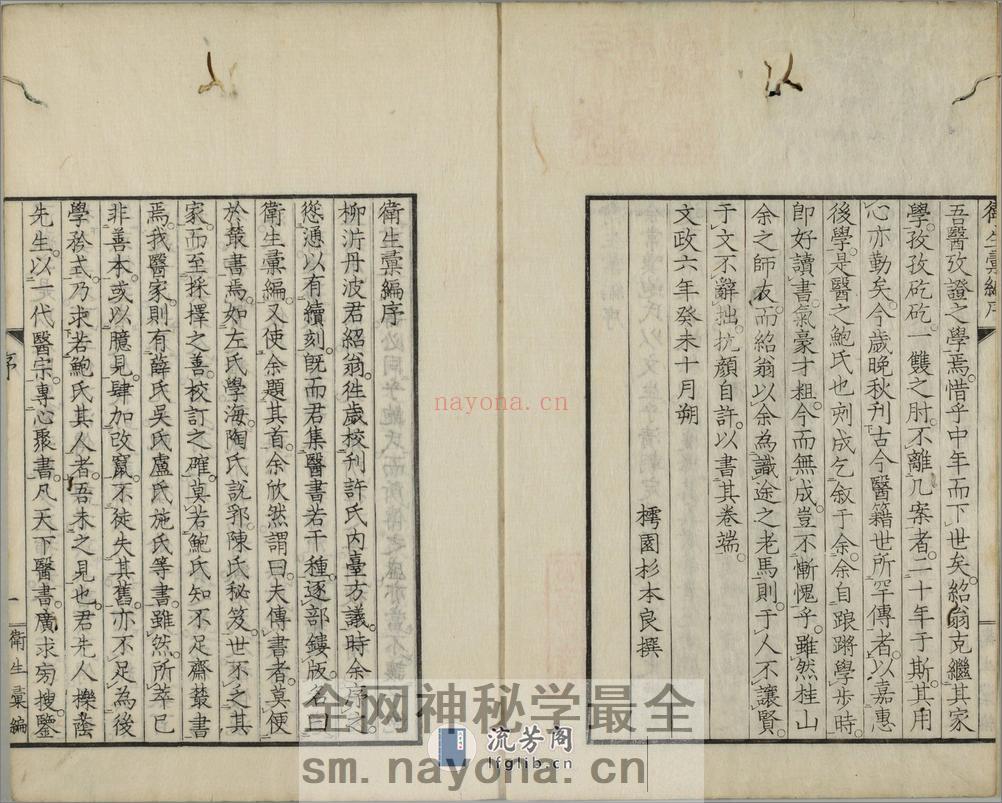 衛生彙編序
吾醫攷證之學焉。惜乎中年而下世矣。紹翁克繼其家
學。孜孜矻矻。一雙之肘。不離几案者。二十年于斯。其用
心亦勤矣。今歲晚秋刊古今醫籍世所罕傳者。以嘉惠
後學。是醫之鮑氏也。刻成乞敘于余。余自踉蹡學步時。
即好讀書。氣豪才粗。今而無成。豈不慚愧乎。雖然桂山
余之師友。而紹翁以余為識途之老馬。則于人不讓賢。
于文不辭拙。抗顏自許。以書其卷端。
文政六年癸未十月朔
樗園杉本良撰
衛生彙編序
柳沜丹波君紹翁。往歲校刊許氏內臺方議。時余序之。
慫慂以有續刻。既而君集醫書若干種。逐部鏤版。名曰
衛生彙編。又使余題其首。余欣然謂曰。夫傳書者。莫便
於叢書焉。如左氏學海。陶氏說郛。陳氏秘笈。世不乏其
家。而至採擇之善。校訂之確。莫若鮑氏知不足齋叢書
焉。我醫家。則有薛氏吳氏盧氏施氏等書。雖然。所萃已
非善本。或以臆見。肆加改竄。不徒失其舊。亦不足為後
學矜式。乃求若鮑氏其人者。吾未之見也。君先人櫟蔭
先生。以一代醫宗。專心聚書。凡天下醫書。廣求旁搜。鑒
序
一
衛生彙編
nayona.cn
全网神秘学最全
流芳阁
lfglib.cn
sm.nayona.cn